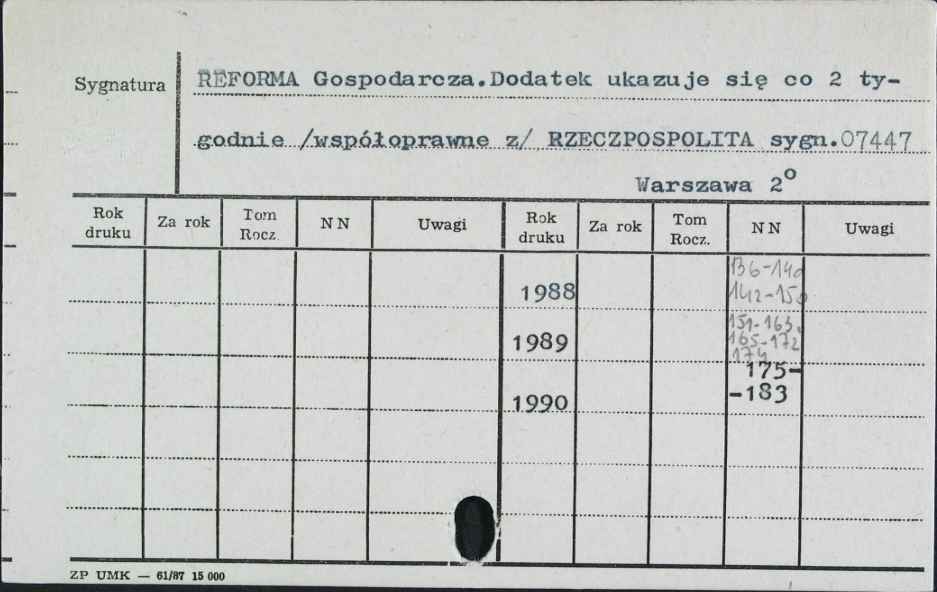 Sygnatura
REFORMA Gospodarcza.Dodatek ukazuje się co 2 ty-
godnie /współoprawne z/ RZECZPOSPOLITA sygn.07447
Warszawa 2°
Rok druku Za rok Tom Rocz. NN Uwagi Rok druku Za rok Tom Rocz. NN Uwagi
136-140
1988 142-150
151-163,
1989 165-172
174
175-
1990 -183
ZP UMK — 61/87 15 000